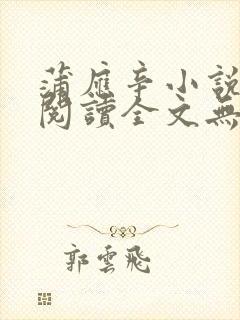 蒲應辛小說
閱讀全文無
郭雲飛